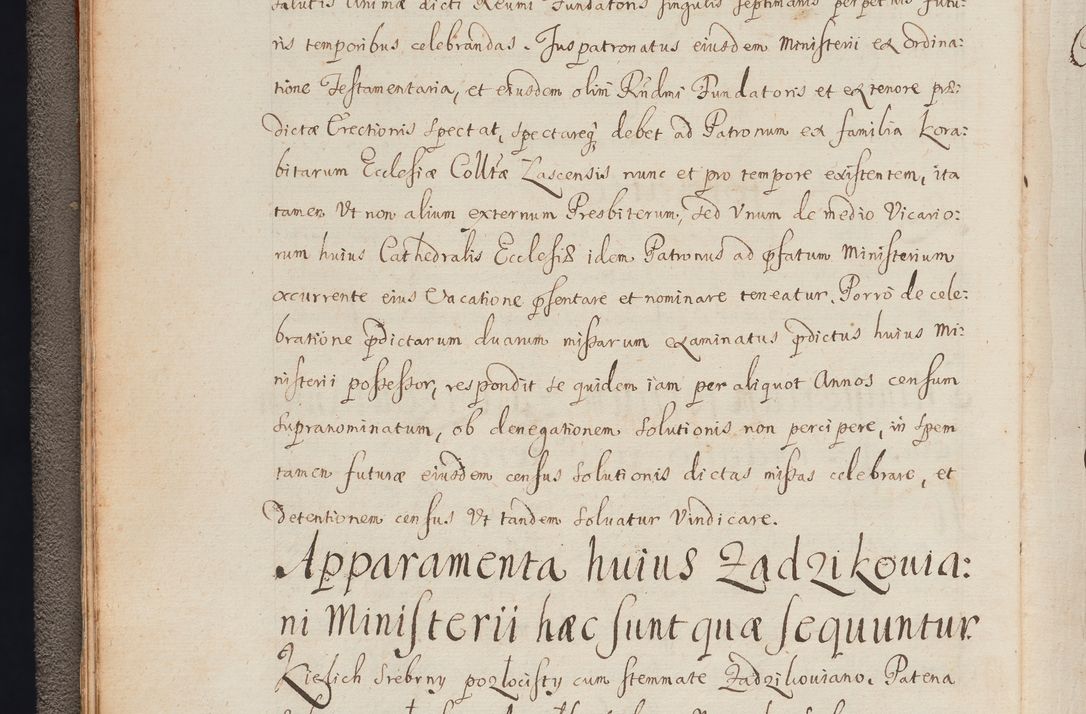 salutis animæ dicti Reumi Fundatoris singulis septimanis perpetuis futu:
ris temporibus celebrandas. Juspatronatus eiusdem Ministerii ex ordina:
tione Testamentaria, et eiusdem olim Rndmi Fundatoris et ex tenore præ:
dictæ Erectionis spectat, spectareq debet ad Patronum ex familia Kora:
bitarum Ecclesiæ Colltæ Lascensis nunc et pro tempore existentem, ita
tamen Vt non alium externum Presbiterum, sed Vnum de medio Vicario:
rum huius Cathedralis Ecclesiæ idem Patronus ad psatum Ministerium
occurrente eius Vacatione psentare et nominare teneatur. Porro de cele:
bratione pdictarum duarum missarum examinatus pdictus huius Mi:
nisterii possessor, respondit se quidem iam per aliquot Annos censum
supranominatum, ob denegationem solutionis non percipere, in spem
tamen futuræ eiusdem census solutionis dictas missas celebrare, et
Detentionem census Vt tandem solvatur Vindicare.
Apparamenta huius Zadzikovia:
ni Ministerii hæc sunt quæ sequuntur.
Kielich srebrny pozłocisty cum stemmate Zadzikoviano. Patena